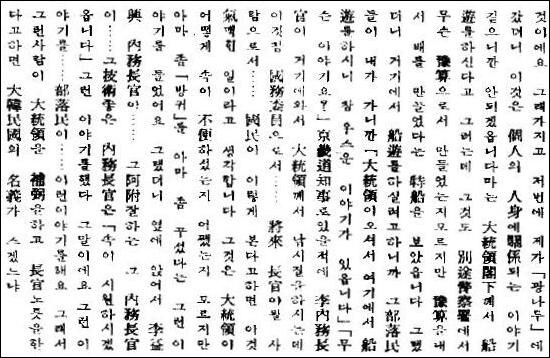 것이에요 그래가지고 저번에 제가 「광나루」에
갔더니 이것은 個人의 人身에關係되는 이야기
같으니까 안되겠읍니다마는 大統領閣下께서 船
遊를하신다고 그러는데 그것도 別途警察署에서
무슨 豫算으로 만들었는지모르지만 豫算을내
서 배를 만들었다는 特船을 보았읍니다 그랬
더니 거기에서 船遊를하실려고하니까 그部落民
들이 내가 가니까「大統領이오셔서 여기에서 船
遊를하시니 참 우스운 이야기가 있읍니다」「무
슨 이야기요?」京畿道知事로있을적에 李內務長
官이 거기에와서 大統領께서 낚시질을하시는데
이것참 國務委員으로서…… 將來 長官이될 사
람으로서…… 國民이 이렇게 본다고하면 참
氣맥힐 일이라고 생각합니다 그것은 大統領이
어떻게 속이 不便하셨는지 어쨌는지 모르지만
아마 좀「방귀」를 아마 좀 뀌셨다는 그런 이
야기를 들었어요 그랬더니 옆에 앉어서 李益
興 內務長官이…… 그阿附잘하는 그 內務長官
이……그技術좋은 內務長官은「속이 시원하시겠
읍니다」그런 이야기를했다 그말이에요 그런 이
야기를……部落民이……이런이야기를해요 그래서
그런사람이 大統領을 補弼을하고 長官노릇을한
다고하면 大韓民國의 名義가 스겠느냐